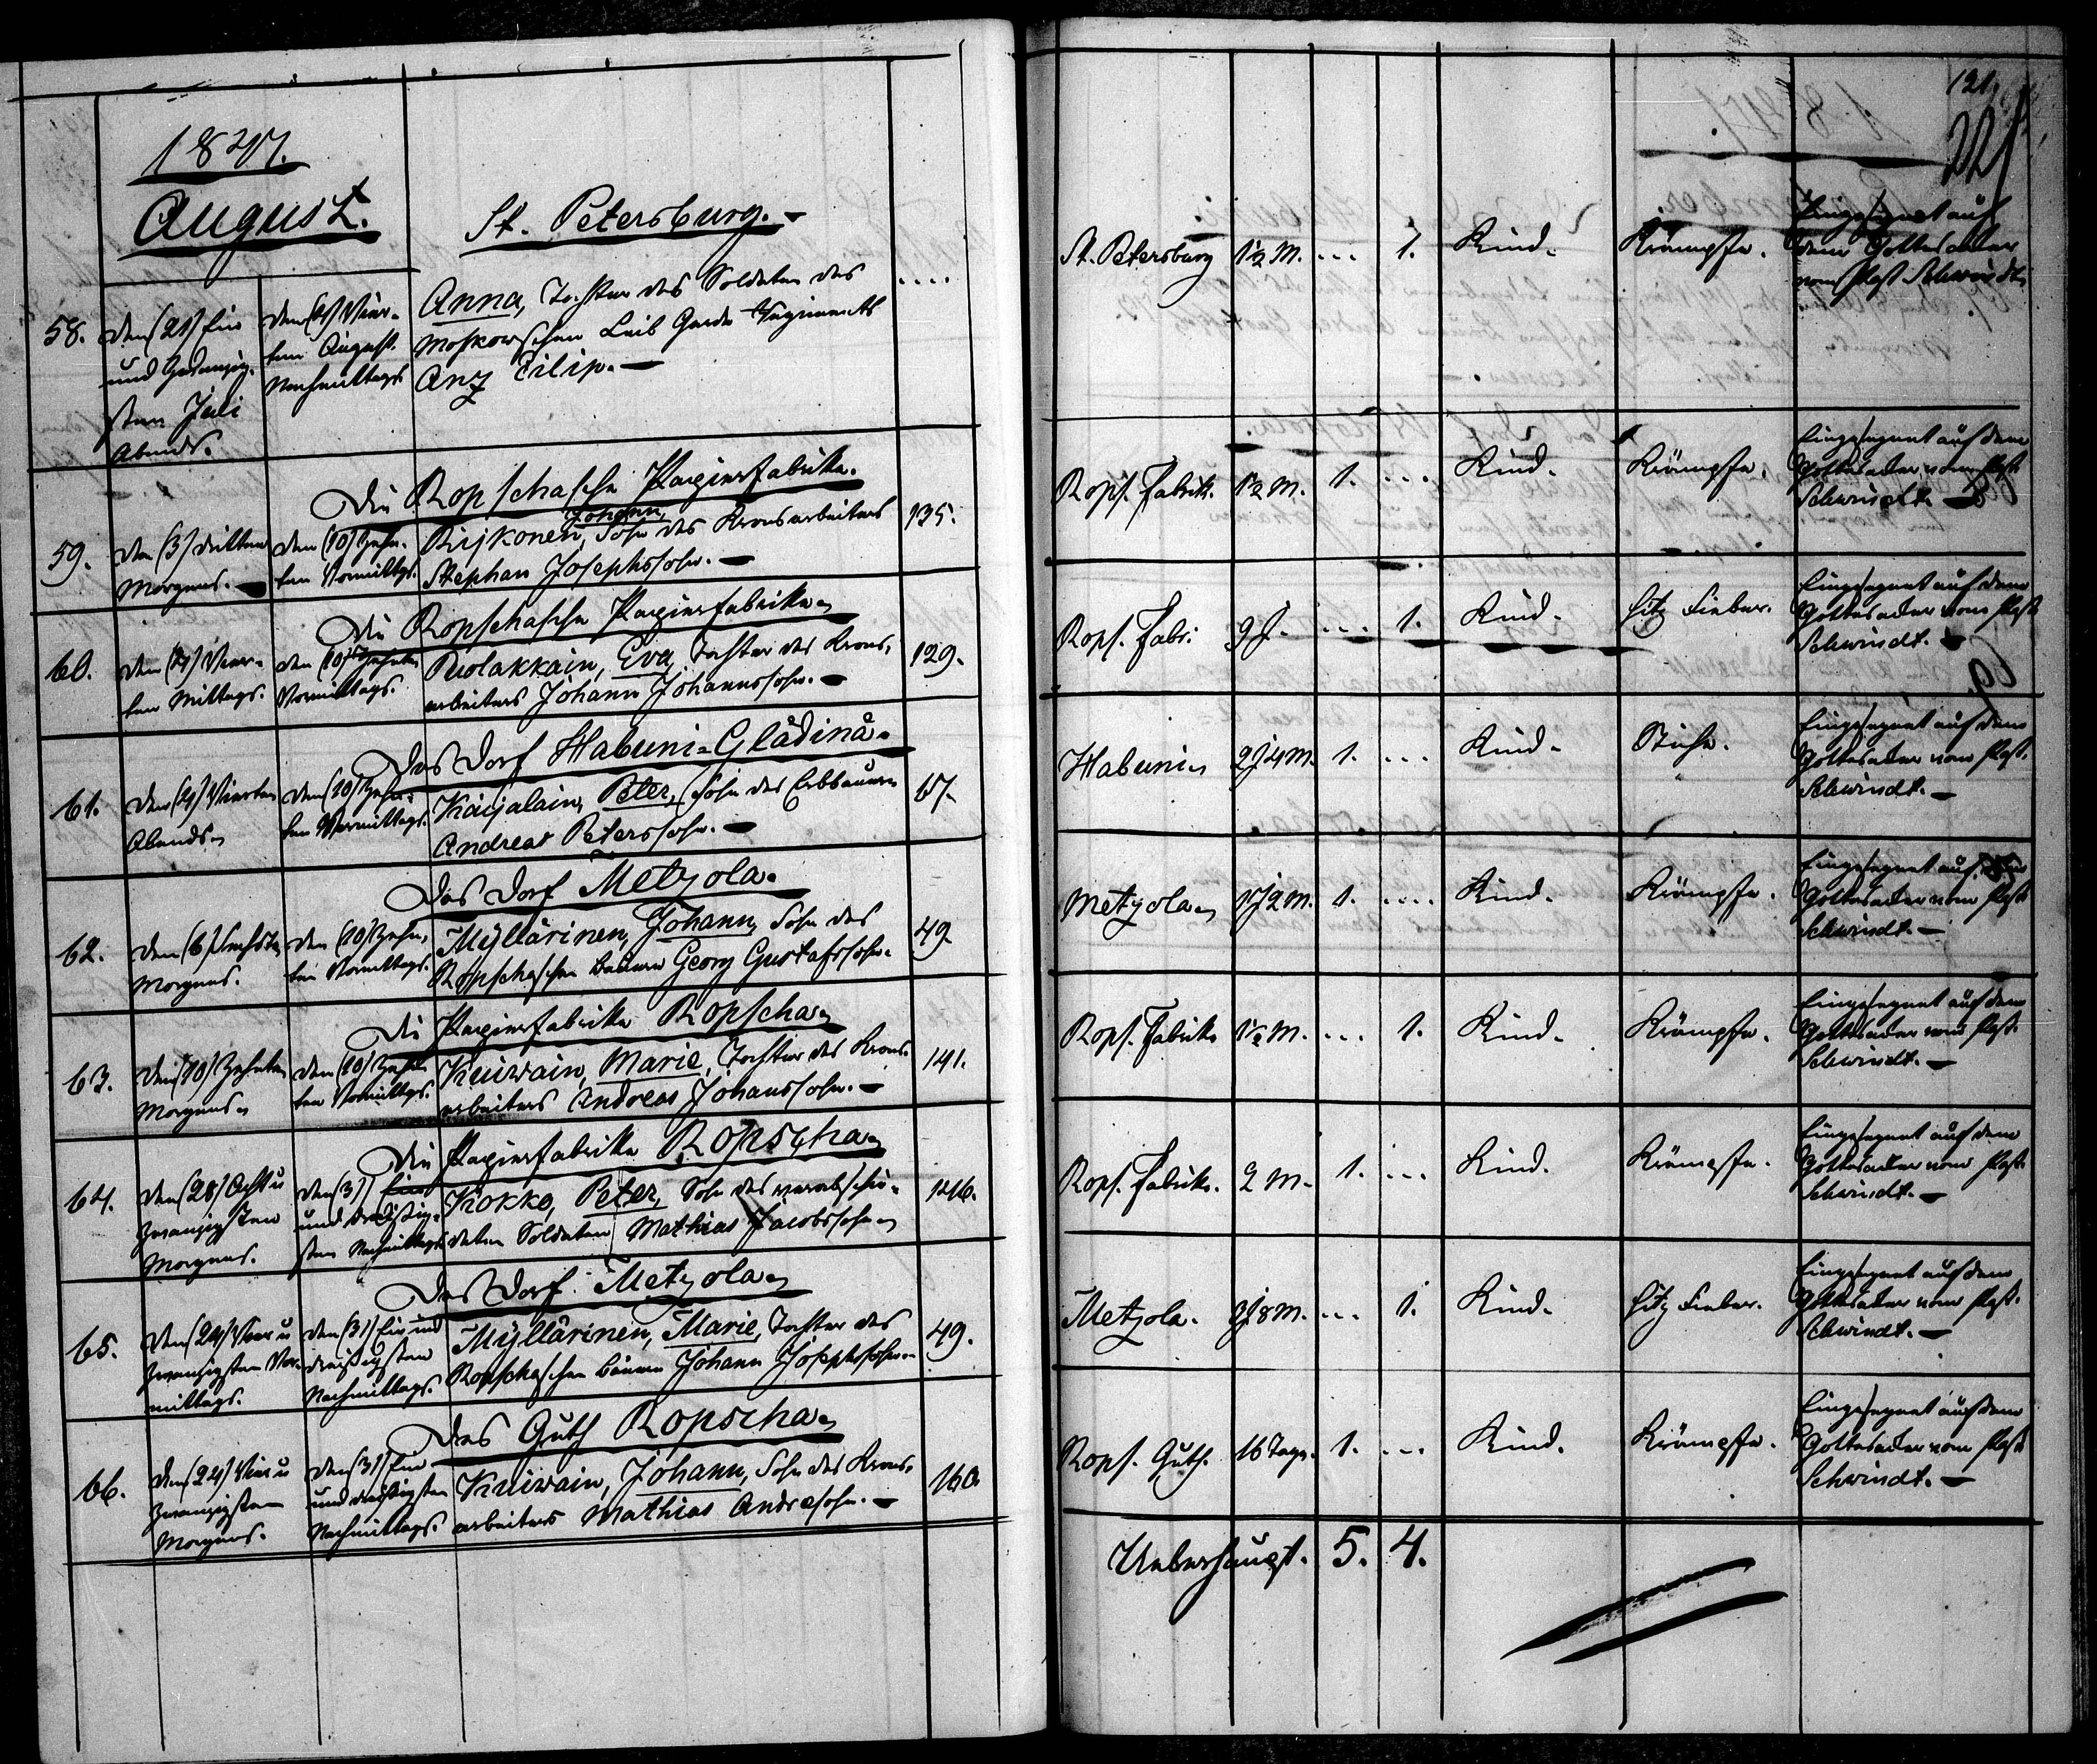 121.
221
1847.
August.
St. Petersburg.
58. den (21) Ein
und Zwanzig-
sten Juli
Abends.
den (4) Vier-
ten August.
Nachmittags
Anna, Tochter des Soldaten des
Moskowschen Leib Garde Regiments
Anz Filip.
....
St. Petersburg 1½ M. ... 1. Kind. Krämpfe.
Eingesegnet auf
dem Gottesacker
vom Past. Schwindt.
Die Ropschasche Papierfabrike.
59. Den (3) dritten
Morgens.
den (10) Zehn-
ten Vormittgs.
Johann,
Rijkonen, Sohn des Kronsarbeiters
Stephan Josephssohn.
135.
Rops. Fabrik. 1½ M. 1. ... Kind. Krämpfe.
Eingesegnet auf dem
Gottesacker vom Past.
Schwindt.
Die Ropschasche Papierfabrike
60. den (4) Vier-
ten Mittags.
den (10) Zehnten
Vormittags.
Puolakkain, Eva, Tochter des Krons-
arbeiters Johann Johannssohn.
129.
Rops. Fabr. 9 J. ... 1. Kind. Hitz Fieber.
Eingesegnet auf dem
Gottesacker vom Past.
Schwindt.
Das Dorf Habuni-Glädinä.
61. Den (4) Vierten
Abends
den (10) Zehn-
ten Vormittags.
Karjalain, Peter, Sohn des Erbbauern
Andreas Peterssohn.
67.
Habuni 2 J 4 M. 1. ... Kind.
Eingesegnet auf dem
Gottesacker vom Past.
Schwindt.
Das Dorf Metzola.
62. Den (6) Sechsten
Morgens.
den (10) Zehn-
ten Vormittags.
Mÿllärinen, Johann, Sohn des
Ropschaschen Bauern Georg Gustafssohn.
49.
Metzola 1 J 2 M. 1. .... Kind. Krämpfe.
Eingesegnet auf dem
Gottesacker vom Past.
Schwindt.
Die Papierfabrike Ropscha
63. Den (10) Zehnten
Morgens
den (10) Zehn-
ten Vormittgs.
Kuiwain, Marie, Tochter des Krons-
arbeiters Andreas Johanssohn.
141.
Rops. Fabrik. 1½ M. ... 1. Kind. Krämpfe.
Eingesegnet auf dem
Gottesacker vom Past.
Schwindt.
Die Papierfabrike Ropscha
64. Den (28) Acht u
zwanzigsten
Morgens.
den (31) Ein
und dreißig-
sten Nachmittags
Kokko, Peter, Sohn des verabschie-
deten Soldaten Mathias Jacobssohn
146.
Rops. Fabrik. 2 M. 1. ... Kind. Krämpfe.
Eingesegnet auf dem
Gottesacker vom Past.
Schwindt.
Das Dorf Metzola
65. Den (24) Vier u
zwanzigsten Vor-
mittags.
den (31) Ein und
dreißigsten
Nachmittags.
Mÿllärinen, Marie, Tochter des
Ropschaschen Bauern Johann Josephssohn
49.
Metzola. 3 J 8 M. ... 1. Kind. Hitz Fieber.
Eingesegnet auf dem
Gottesacker vom Past.
Schwindt.
Das Guth Ropscha
66. Den (24) Vier u
zwanzigsten
Morgens.
den (31) Ein
und dreißigsten
Nachmittags.
Kuiwain, Johann, Sohn des Krons-
arbeiters Mathias Andressohn.
160.
Rops. Guth. 16 Tage. 1. ... Kind. Krämpfe.
Eingesegnet auf dem
Gottesacker vom Past.
Schwindt.
Ueberhaupt. 5. 4.